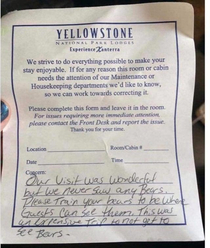 YELLOWSTONE
NATIONAL PARK LODGES
Experience Xanterra
We strive to do everything possible to make your
stay enjoyable. If for any reason this room or cabin
needs the attention of our Maintenance or
Housekeeping departments we'd like to know,
so we can work towards correcting it.
Please complete this form and leave it in the room.
For issues requiring more immediate attention,
please contact the Front Desk and report the issue.
Thank you for your time.
Location Room/Cabin #
Date Time
Concern:
Our visit was wonderful
but we never saw any bears.
Please train your bears to be where
guests can see them. This was
an expensive trip to not get to
see bears.